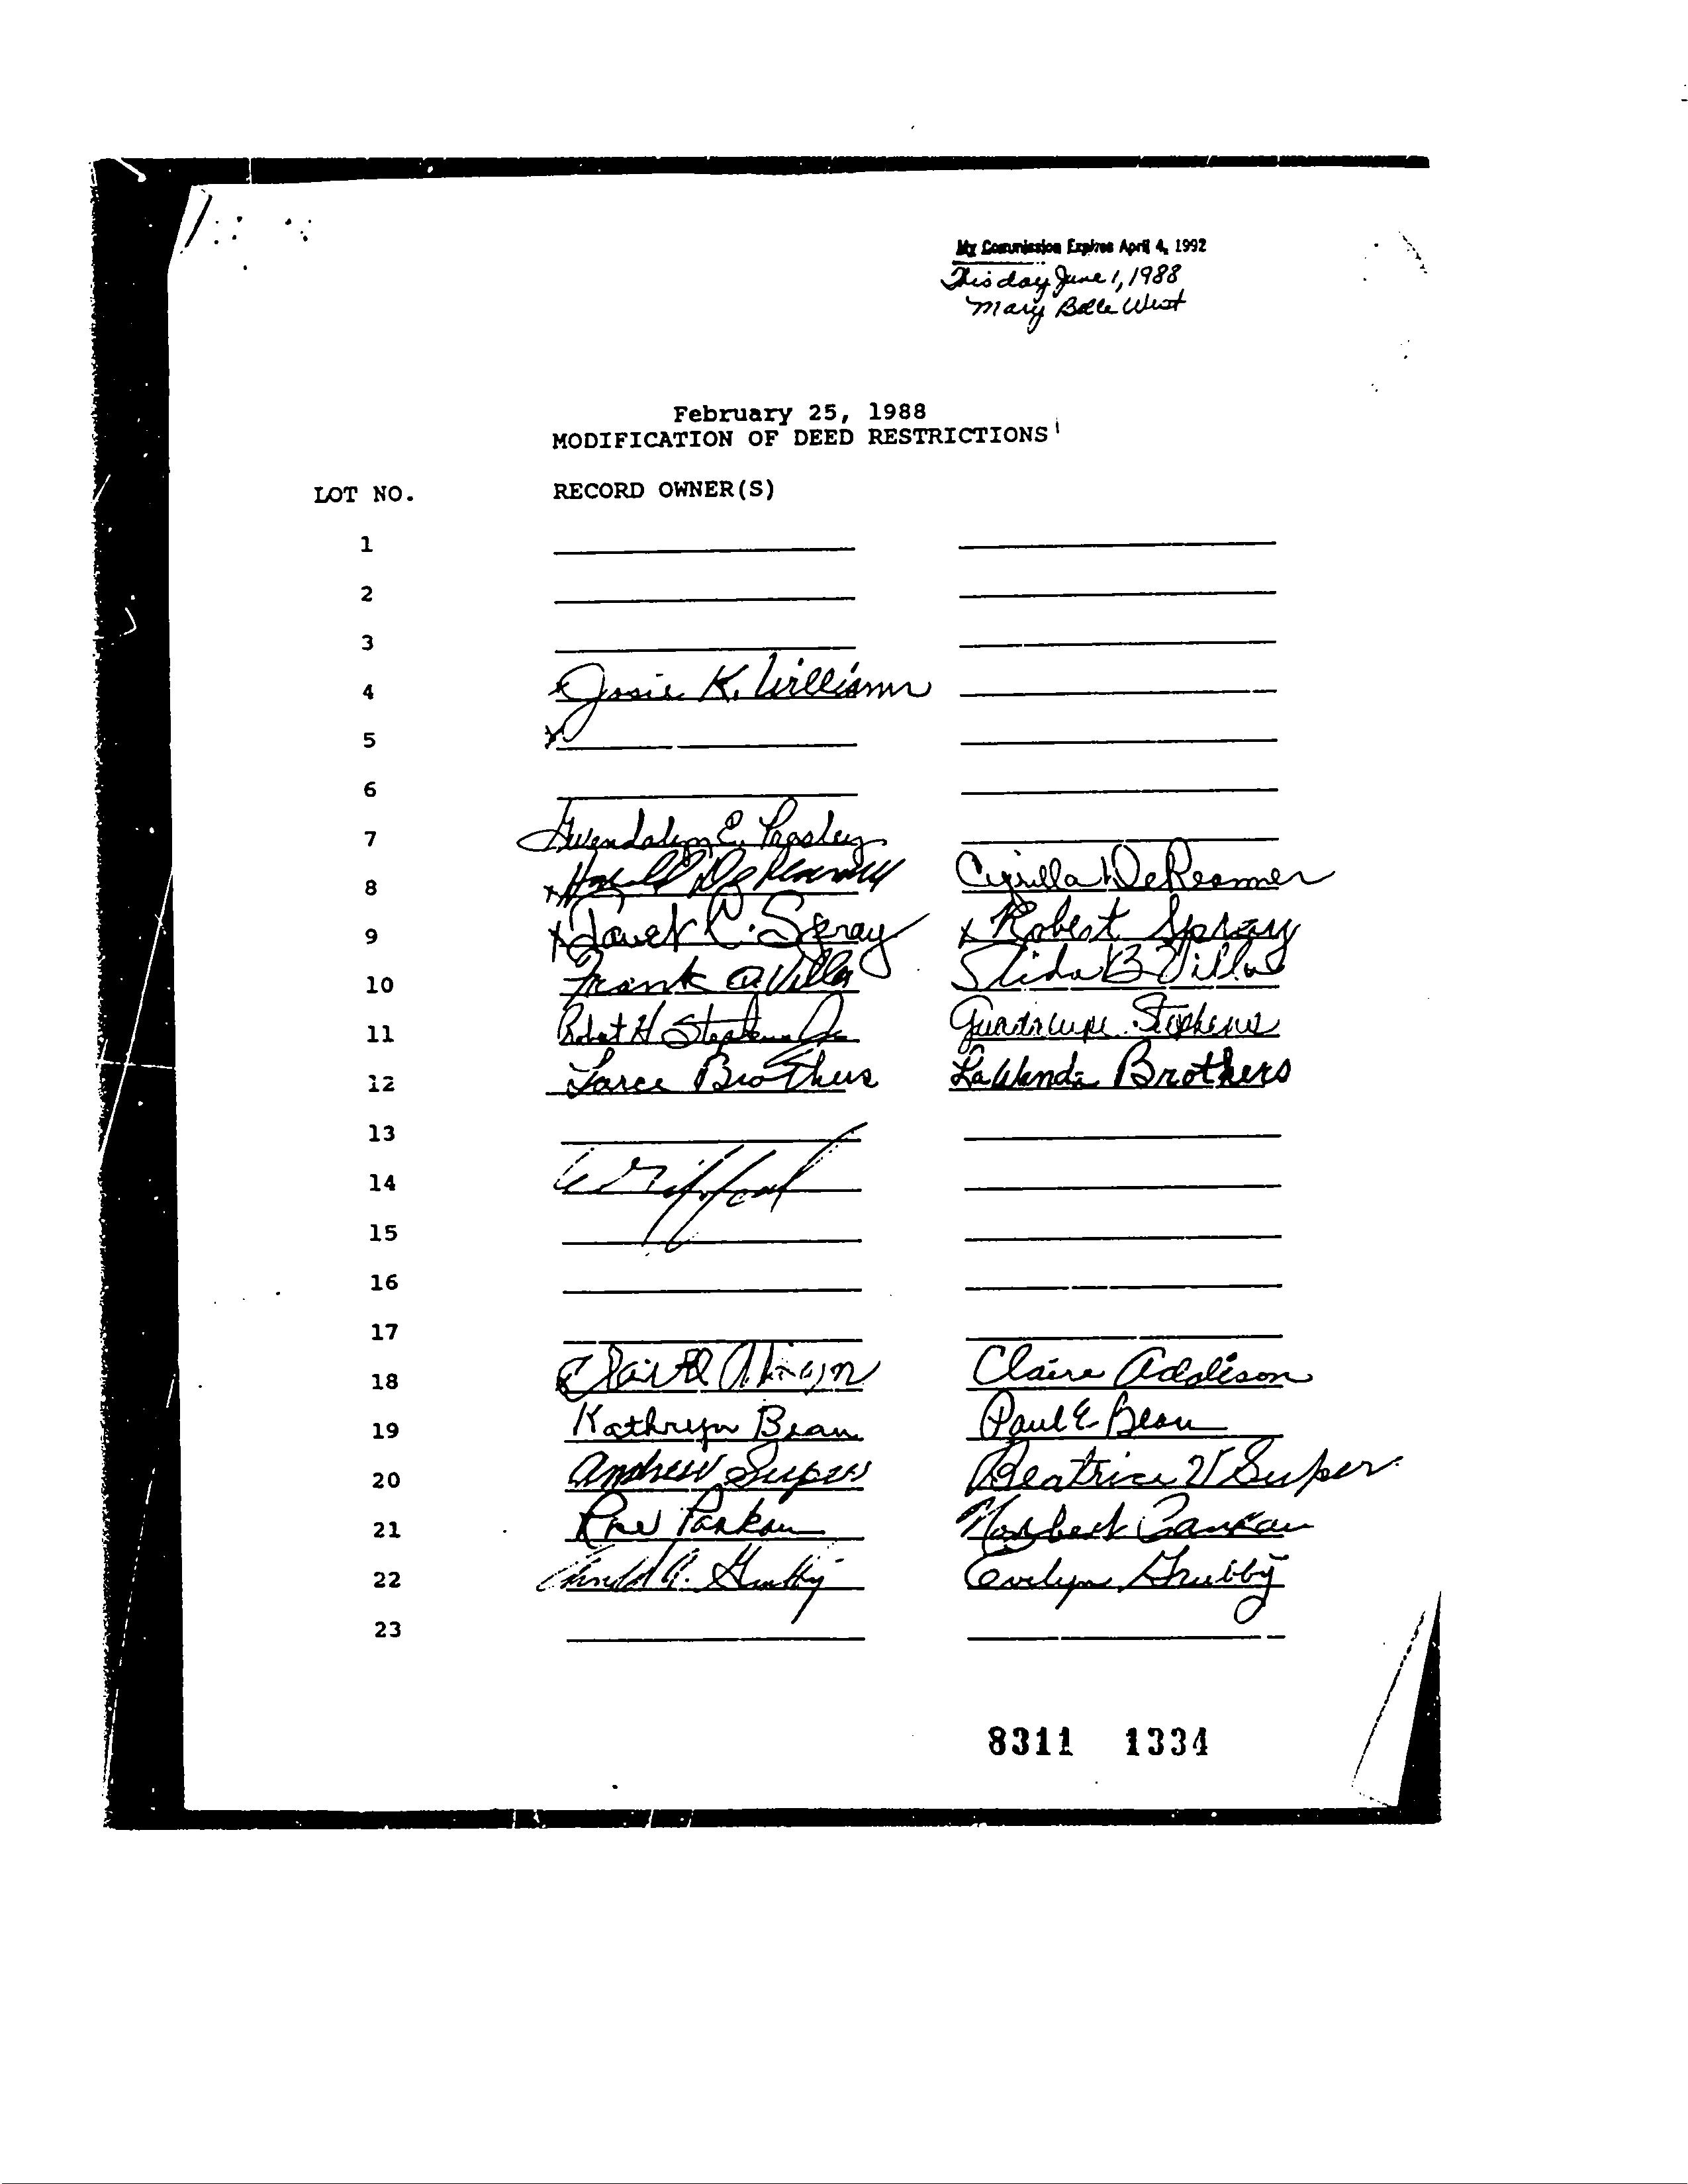 My Commission Expires April 4, 1992
This day June 1, 1988
Mary Belle West
February 25, 1988
MODIFICATION OF DEED RESTRICTIONS
LOT NO. RECORD OWNER(S)
1
2
3
4 x Josie K. Williams
5 x
6
7 Gwendolyn E. Presley
8 x Harold DeReamer Cyrilla DeReamer
9 x Janet C. Spray x Robert Spray
10 Frank a Villa B Villa
11 Robert H Stephens Jr Guadalupe Stephens
12 Brothers LaWanda Brothers
13
14
15
16
17
18 Claire Addison
19 Kathryn Bean Paul E Bean
20 Andrew Super Beatrice V Super
21 Rae Pankau Norbert Pankau
22 A. Grubby Evelyn Grubby
23
8311 1334